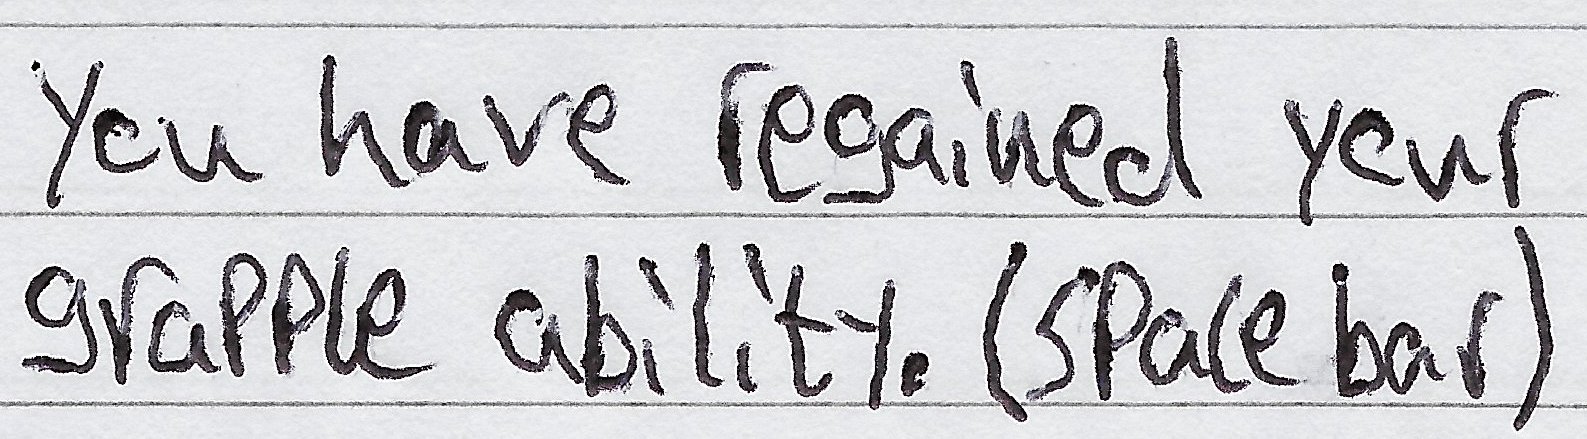 You have regained your
grapple ability. (space bar)